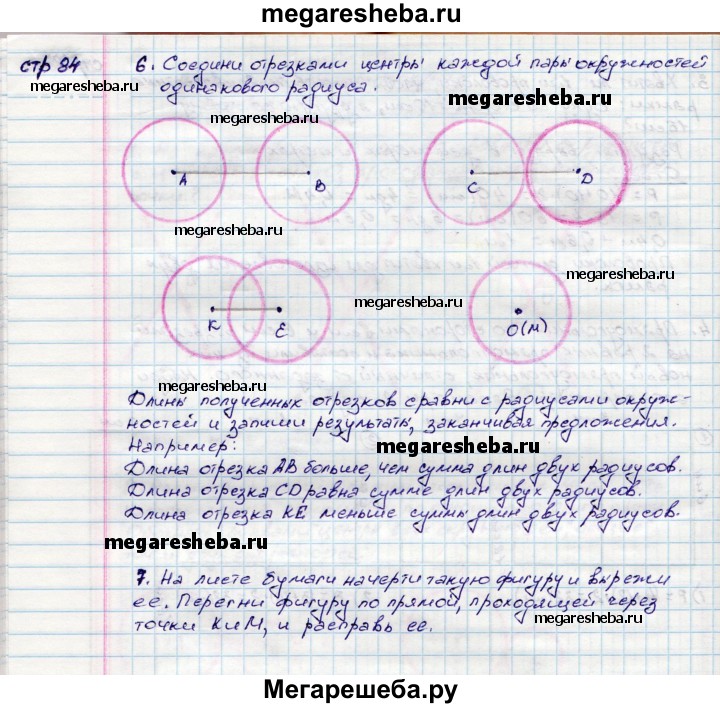 megaresheba.ru
стр 84
6. Соедини отрезками центры каждой пары окружностей
одинакового радиуса.
megaresheba.ru
megaresheba.ru
megaresheba.ru
A
B
C
D
megaresheba.ru
megaresheba.ru
megaresheba.ru
К
Е
О(М)
Длины полученных отрезков сравни с радиусами окруж-
ностей и запиши результаты, заканчивая предложения.
Например:
megaresheba.ru
Длина отрезка АВ больше, чем сумма длин двух радиусов.
Длина отрезка CD равна сумме длин двух радиусов.
Длина отрезка КЕ меньше суммы длин двух радиусов.
megaresheba.ru
7. На листе бумаги начерти такую фигуру и вырежи
ее. Перегни фигуру по прямой, проходящей через
точки К и М, и расправь ее.
megaresheba.ru
Мегарешеба.ру